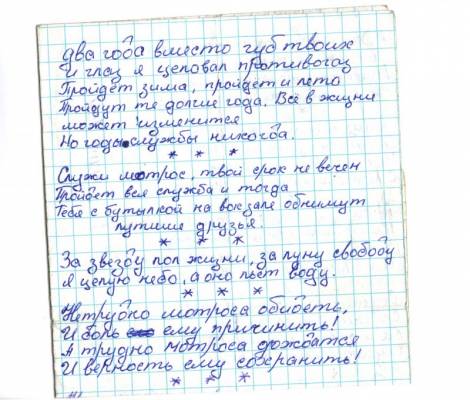 два года вместо губ твоих
И глаз я целовал противогаз
Пройдет зима, пройдет и лето
Пройдут те долгие года. Всё в жизни
может изменится
Но годы службы никогда.
* * *
Служи мотрос, твой срок не вечен
Пройдет вся служба и тогда
Тебя с бутылкой на вокзале обнимут
лутшие друзья.
* * *
За звезду пол жизни, за луну свободу
я целую небо, а оно пьет воду.
* * *
Нетрудно мотроса обидеть,
И боль ему причинить!
А трудно мотроса дождатся
И верность ему сохранить!
* * *